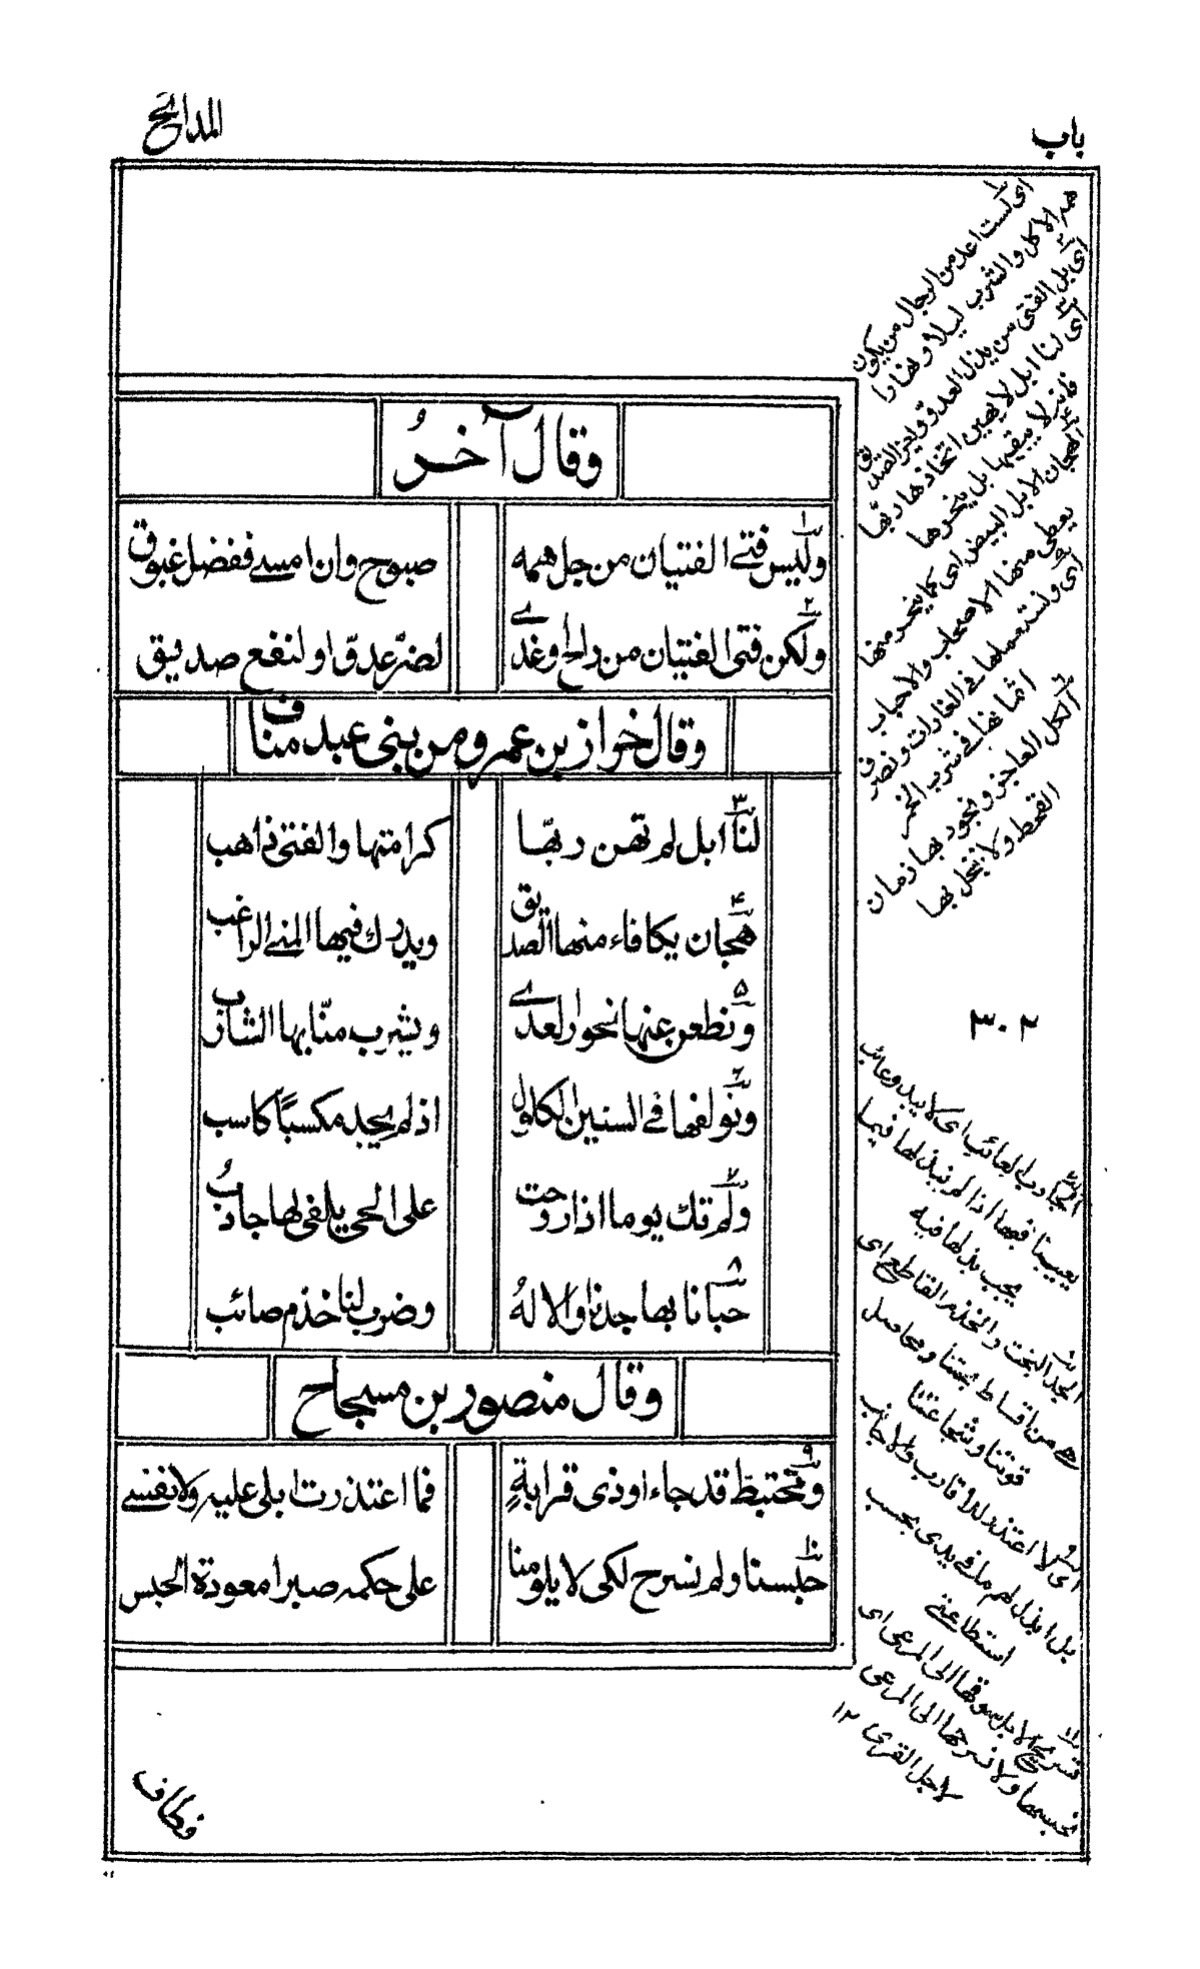 باب
المدائح
وقال آخرُ
وليس فتے الفتيان من جل همه صبوح وان امسے ففضل غبوق
ولكن فتى الفتيان من راح اوغدے لضرّ عدوّ اولنفع صديق
وقال خواز بن عمرو من بنى عبد مناف
لنا ابل لم تهن ربّها كرامتها والفتى ذاهب
هجان يكافاء منها الصديق ويدرك فيها المنے الراغب
ونطعن عنها نحور العدے ويشرب منّا بها الشارب
ونولفها فے السنين الكلول اذ لم يجد مكسبًا كاسب
ولم تك يوما اذا روحت على الحي يلفى لها جادبُ
حبانا بها جدنا والالهُ وضرب لنا خذم صائب
وقال منصور بن مسجاح
ومختبط قد جاء اوذى قرابةٍ فما اعتذرت ابلى عليه ولا نفسے
حبسنا ولم نسرح لكى لا يلومنا على حكمه صبرا معودة الحبس
اى لست اعد من الرجال من يكون
همه الاكل والشرب ليلا ونهارا
اى بل الفتى من يذل العدو ويعز الصديق
اى لنا ابل لا يهين اتخاذها ربّها
فانه لا يبقيها بل ينحرها
الهجان الابل البيض اى كما ينحر منها
يعطى منها الاصحاب والاحباب
اى ولنستعملها فى الغارات ونصرف
اثمانها فے شرب الخمر
الكل العاجز ونجود بها زمان
القحط ولا نبخل بها
٣٠٢
الجادب العائب اى لا يبدو عائب
يعيبنا فيها اذا لم نبذلها فيما
يجب بذلها فيه
الجد البخت والخذم القاطع اى
هے من اقساط بختنا وحاصل
قوتنا وشجاعتنا
اى لا اعتذر للاقارب والاجانب
بل ابذل لهم ما فے يدى بحسب
استطاعتے
تسريح الابل سوقها الى المرعى اى
نحبسها ولا نسرحها الى المرعى
لاجل القرى ١٢
فطاف